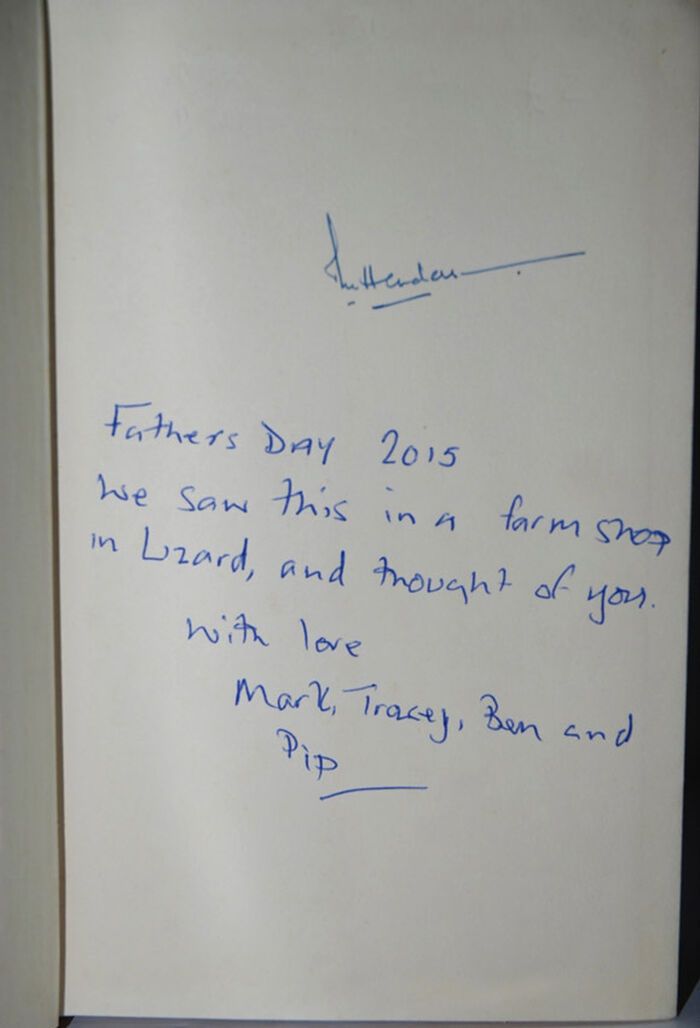 Fathers DAY 2015
We saw this in a farm shop
in Lizard, and thought of you.
With love
Mark, Tracey, Ben and
Pip